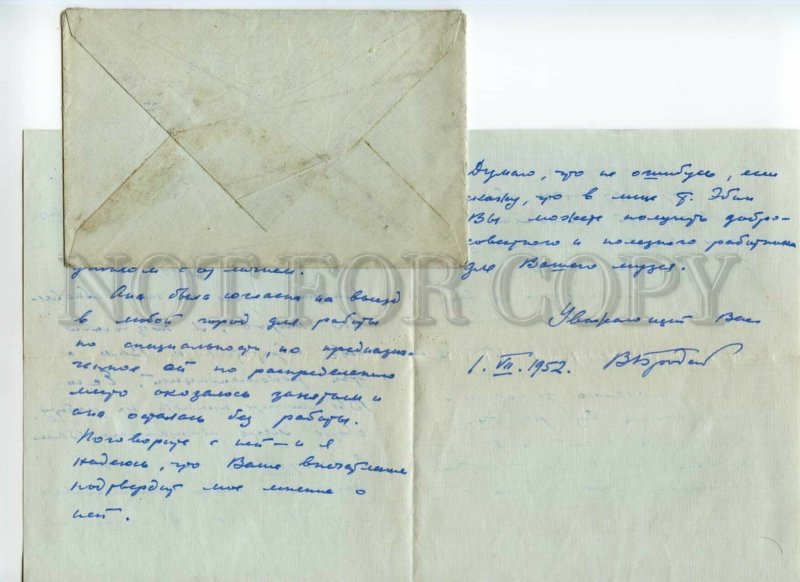 дипломом с отличием.
Она была согласна на выезд
в любой город для работы
по специальности, но предназна-
ченное ей по распределению
место оказалось занятым и
она осталась без работы.
Поговорите с ней – и я
надеюсь, что Ваше впечатление
подтвердит мое мнение о
ней.
Думаю, что не ошибусь, если
скажу, что в лице т. Эбин
Вы можете получить добро-
совестного и полезного работника
для Вашего музея.
Уважающий Вас
1.VII.1952.
NOT FOR COPY